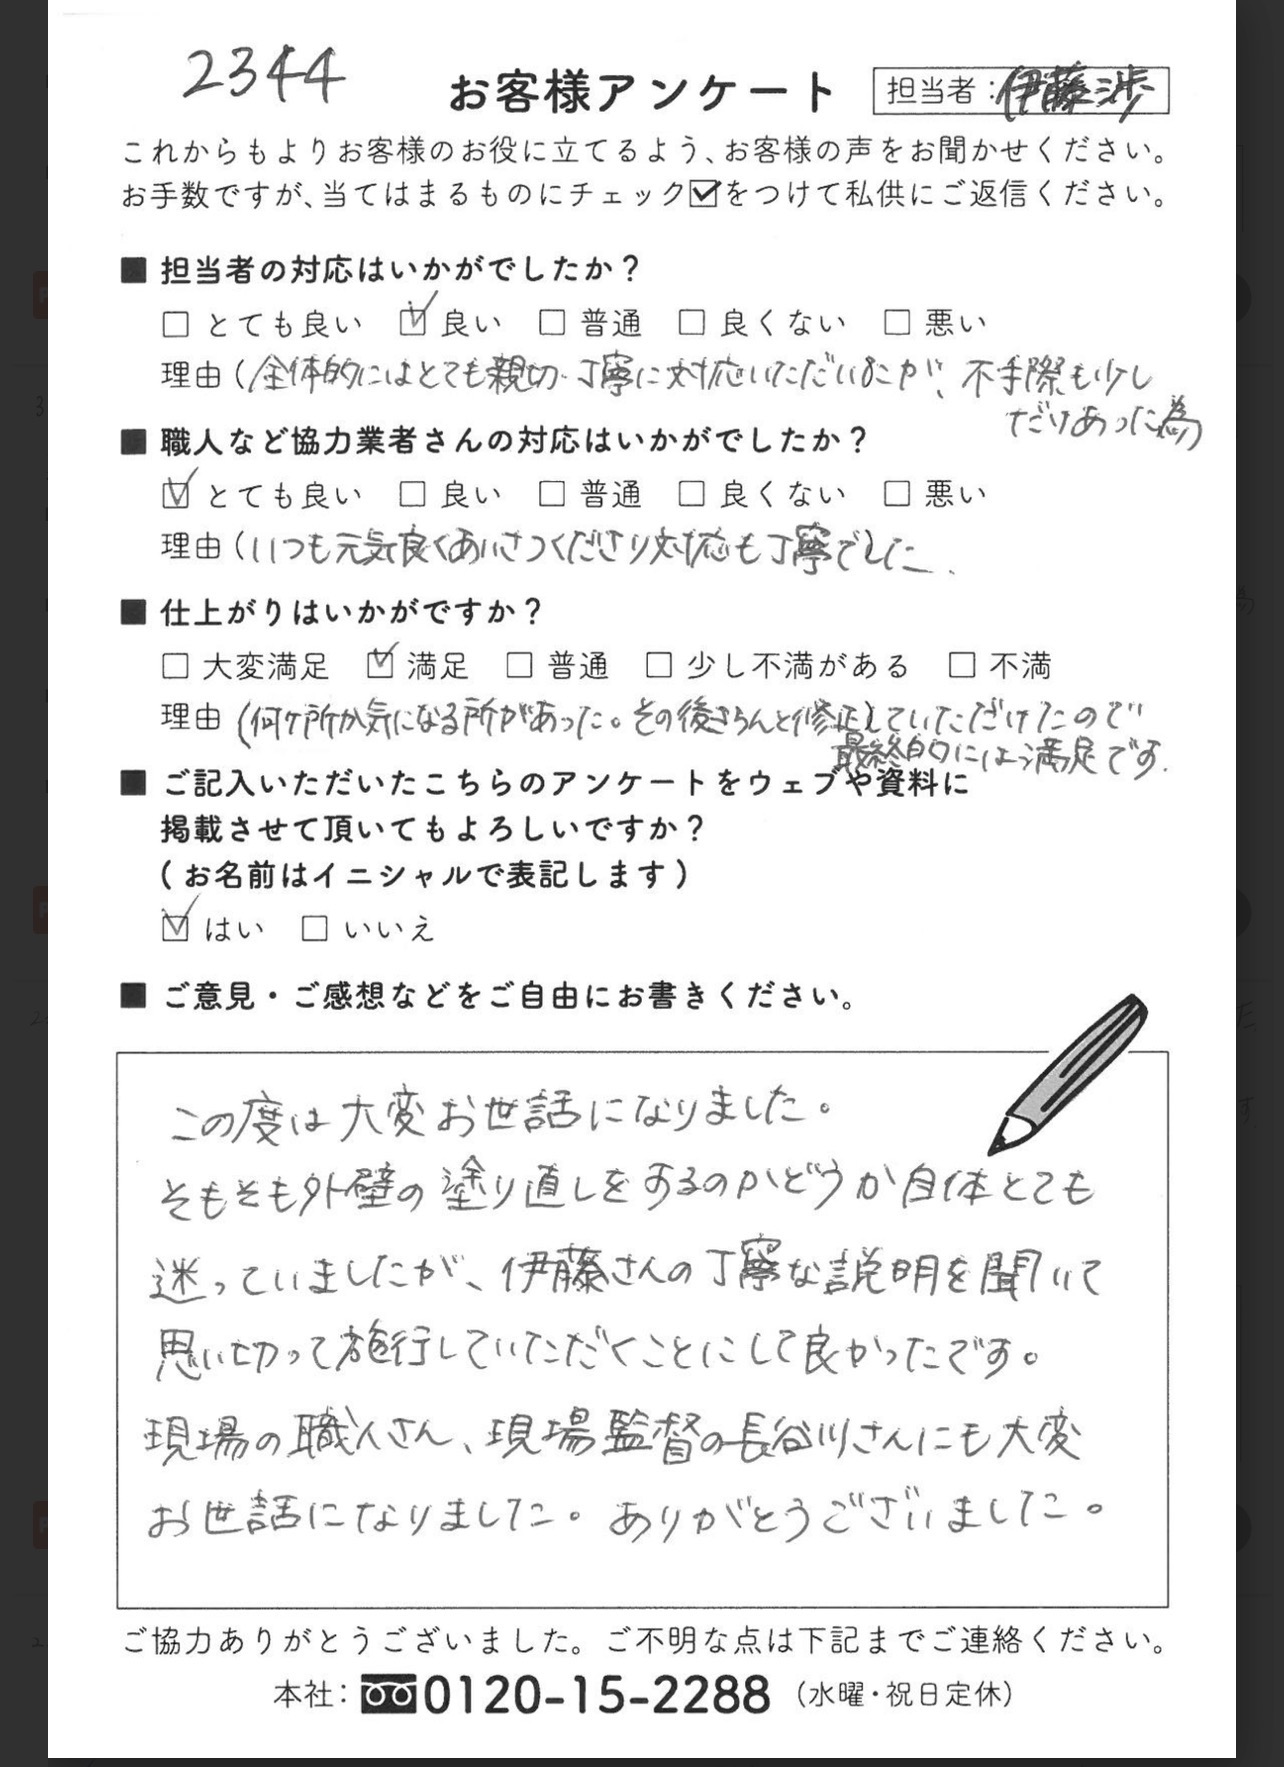 2344
お客様アンケート
担当者：伊藤渉
これからもよりお客様のお役に立てるよう、お客様の声をお聞かせください。
お手数ですが、当てはまるものにチェック☑をつけて私供にご返信ください。
■ 担当者の対応はいかがでしたか？
□ とても良い ☑ 良い □ 普通 □ 良くない □ 悪い
理由（全体的にはとても親切・丁寧に対応いただいたが、不手際も少し
だけあった為
■ 職人など協力業者さんの対応はいかがでしたか？
☑ とても良い □ 良い □ 普通 □ 良くない □ 悪い
理由（いつも元気良くあいさつくださり対応も丁寧でした、
■ 仕上がりはいかがですか？
□ 大変満足 ☑ 満足 □ 普通 □ 少し不満がある □ 不満
理由（何ヶ所か気になる所があった。その後きちんと修正していただけたので
最終的には満足です.
■ ご記入いただいたこちらのアンケートをウェブや資料に
掲載させて頂いてもよろしいですか？
（お名前はイニシャルで表記します）
☑ はい □ いいえ
■ ご意見・ご感想などをご自由にお書きください。
この度は大変お世話になりました。
そもそも外壁の塗り直しをするのかどうか自体とても
迷っていましたが、伊藤さんの丁寧な説明を聞いて
思い切って施行していただくことにして良かったです。
現場の職人さん、現場監督の長谷川さんにも大変
お世話になりました。ありがとうございました。
ご協力ありがとうございました。ご不明な点は下記までご連絡ください。
本社：0120-15-2288（水曜・祝日定休）